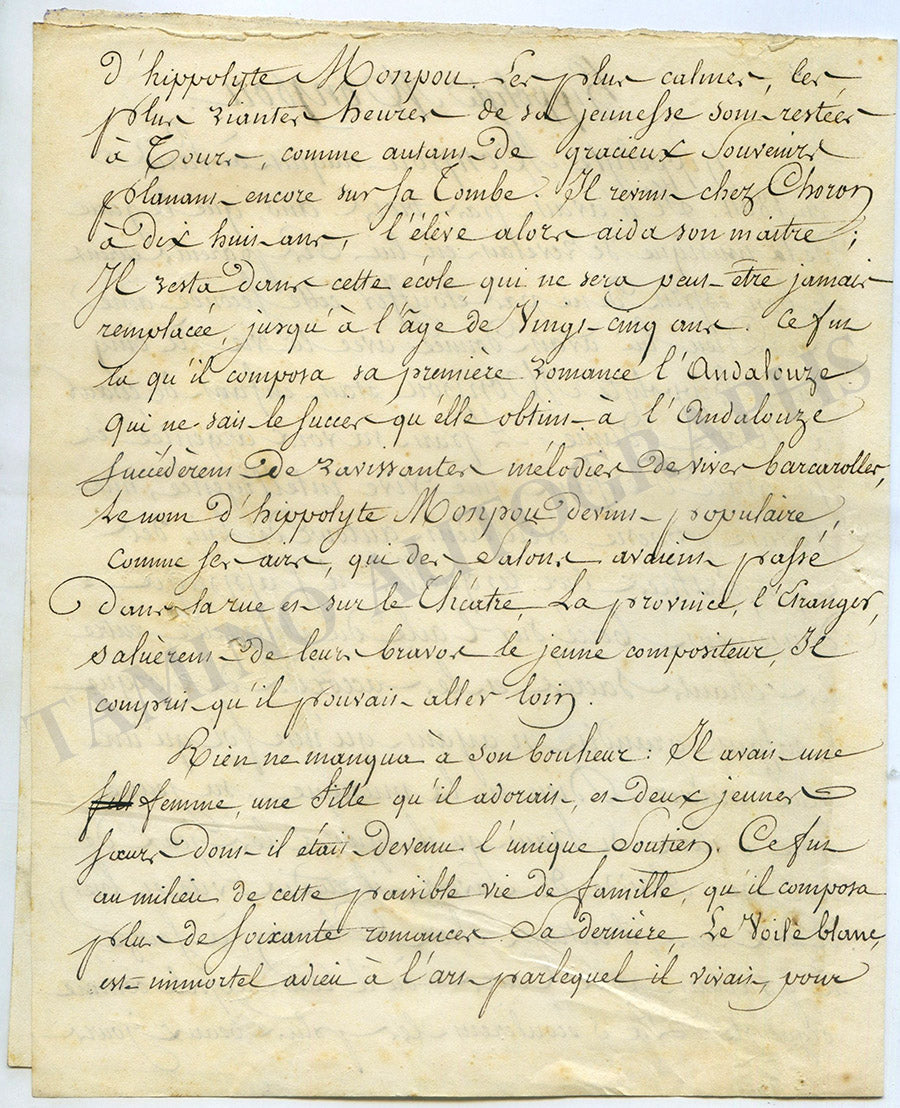 d'hippolyte Monpou. Les plus calmes, les
plus riantes heures de sa jeunesse sont restées
à Tours, comme autant de gracieux Souvenirs
planant encore sur sa Tombe. Il revint chez Choron
à Dix huit ans, l'élève alors aida son maitre ;
Il resta dans cette école qui ne sera peut-être jamais
remplacée, jusqu'à l'âge de Vingt-cinq ans. Ce fut
la qu'il composa sa première romance l'Andalouze
qui ne sait le succès qu'elle obtint à l'Andalouze
succédèrent de ravissantes mélodies de vives barcarolles,
Le nom d'hippolyte Monpou devint populaire,
comme ses airs, qui des Salons avaient passé
dans la rue et sur le Théatre, La province, l'Etranger,
saluèrent de leurs bravos le jeune compositeur, Il
comprit qu'il pouvait aller loin.
Rien ne manqua à son bonheur : Il avait une
fill femme, une Fille qu'il adorait, et deux jeunes
sœurs dont il était devenu l'unique Soutien. Ce fut
au milieu de cette paisible vie de famille, qu'il composa
plus de soixante romances. Sa dernière, Le Voile blanc,
est immortel adieu à l'art par lequel il vivait, pour
TAMINO AUTOGRAPHS